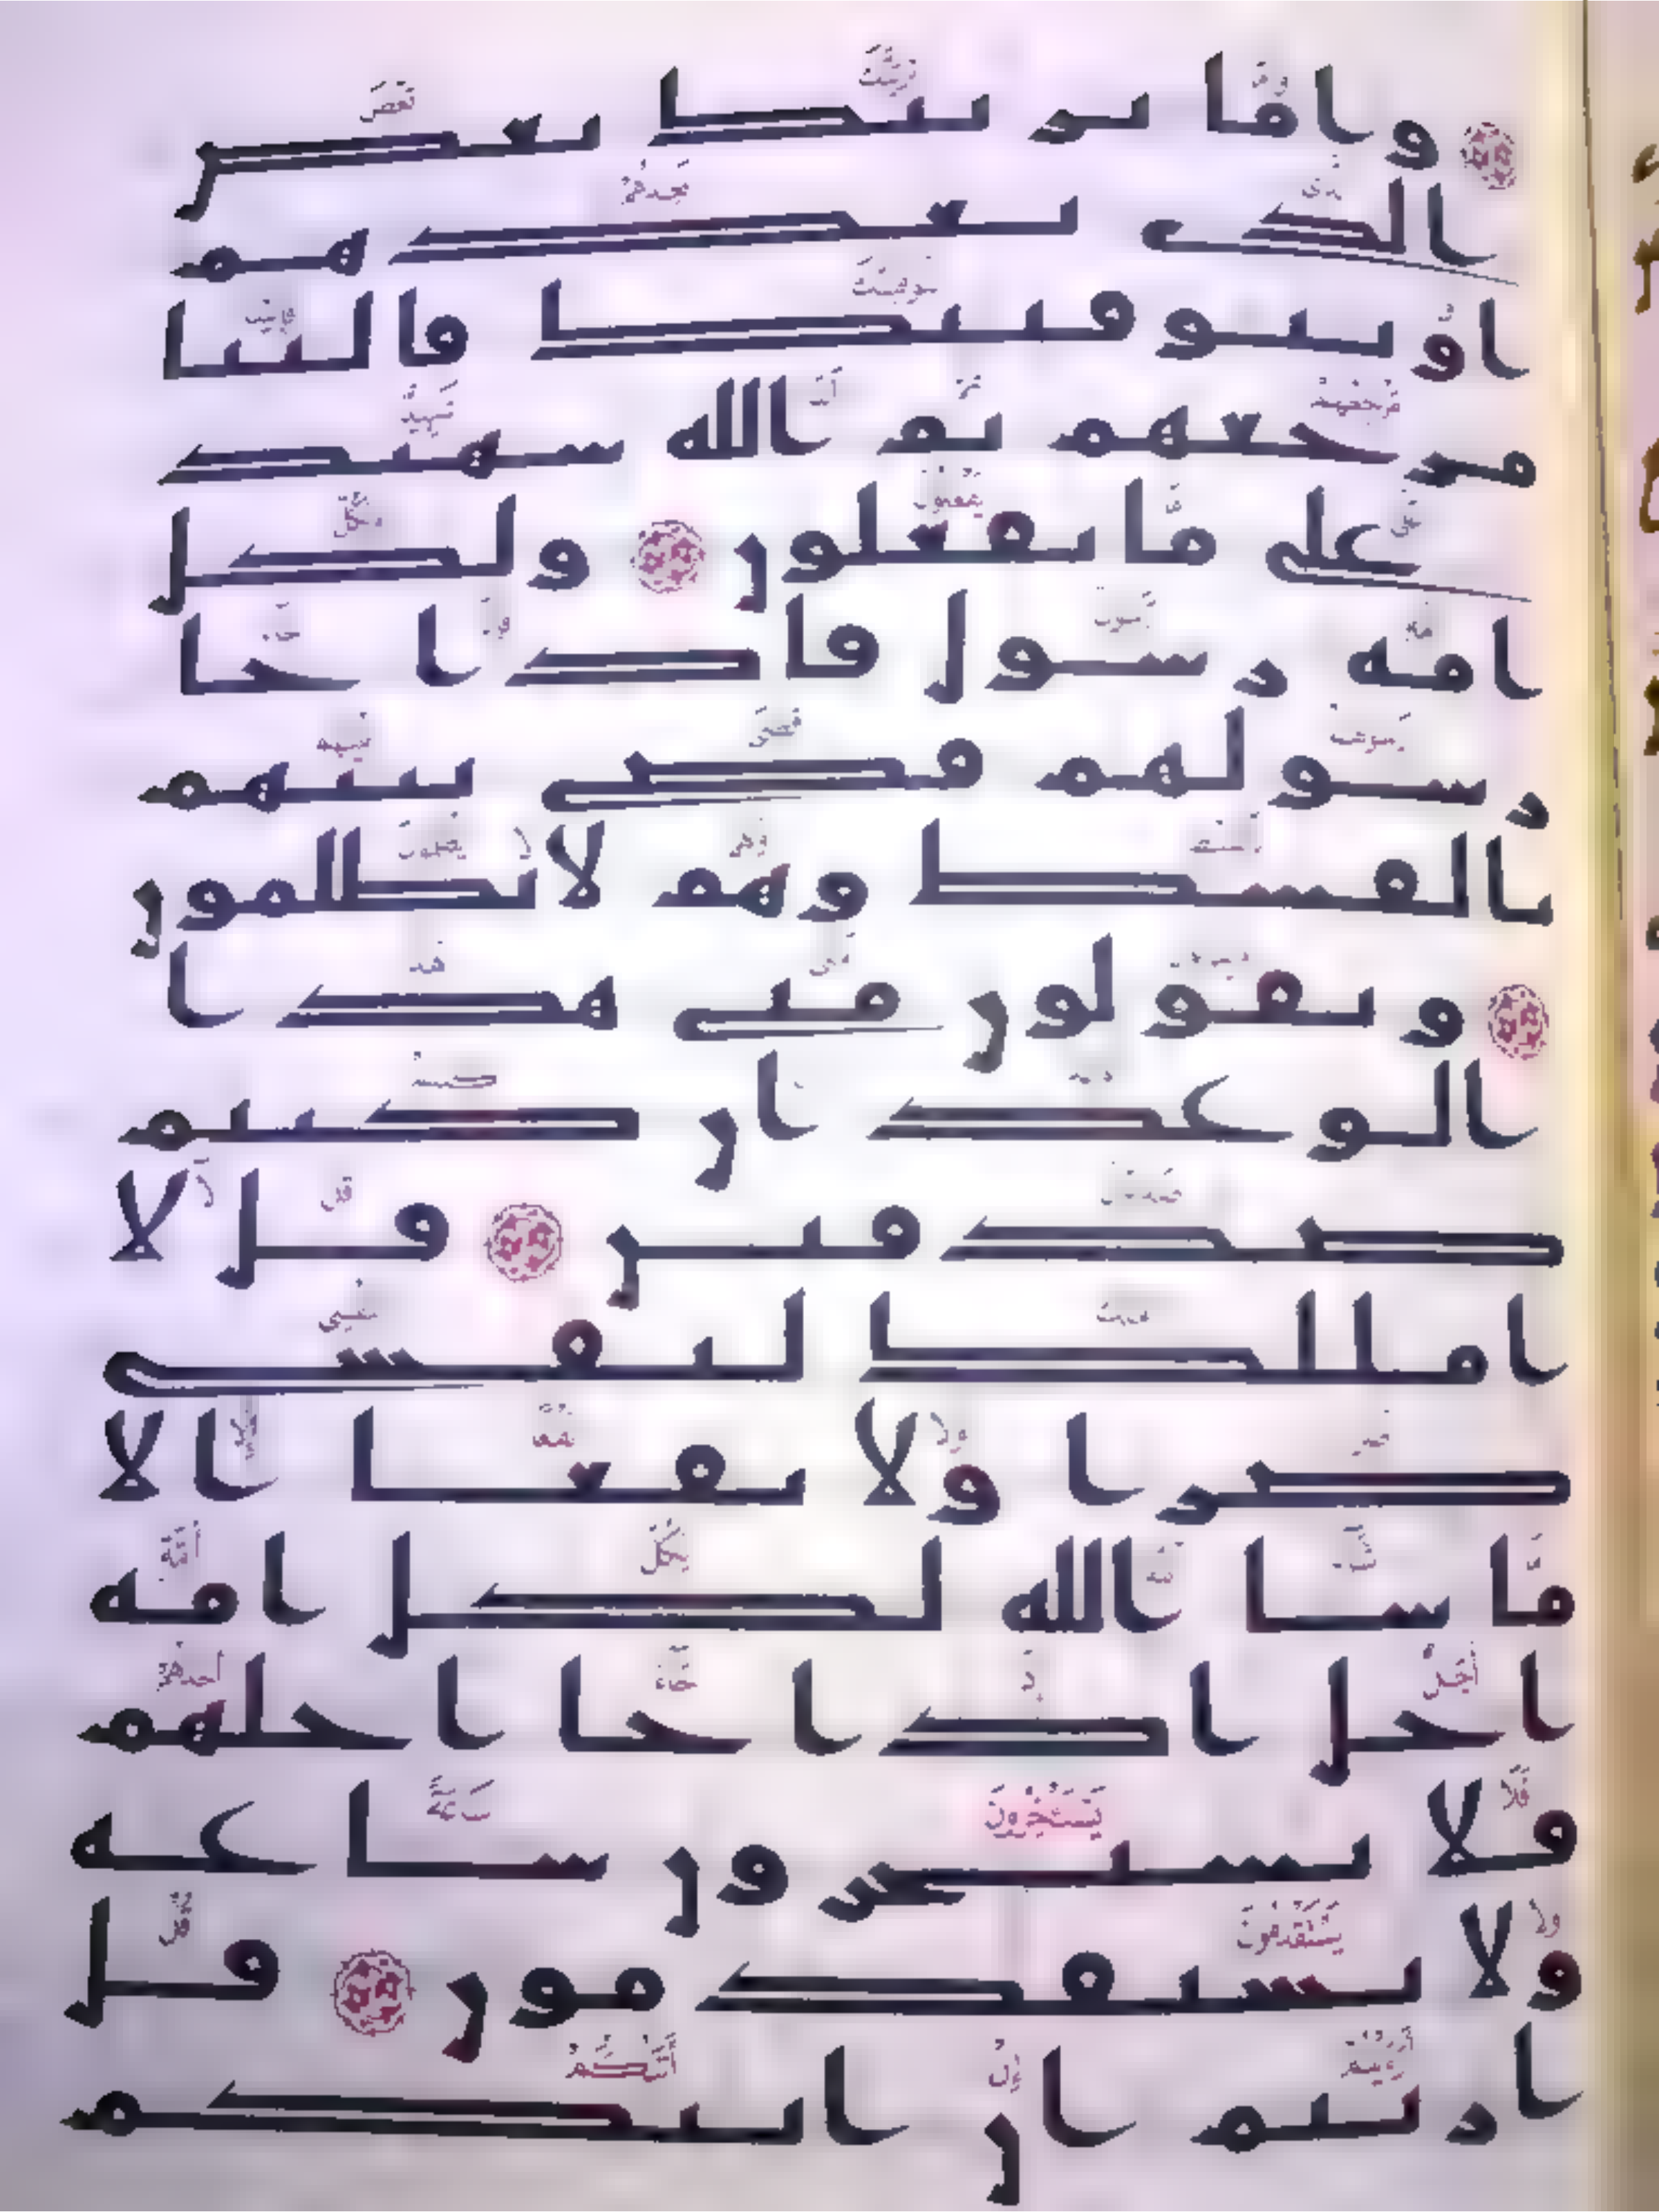 واما نرينك بعض
الذى نعدهم
او نتوفينك فالينا
مرجعهم ثم الله شهيد
على ما يفعلون ولكل
امة رسول فاذا جا
رسولهم قضى بينهم
بالقسط وهم لا يظلمون
ويقولون متى هذا
الوعد ان كنتم
صدقين قل لا
املك لنفسى
ضرا ولا نفعا الا
ما شا الله لكل امة
اجل اذا جا اجلهم
فلا يستخرون ساعة
ولا يستقدمون قل
اريتم ان اتيكم